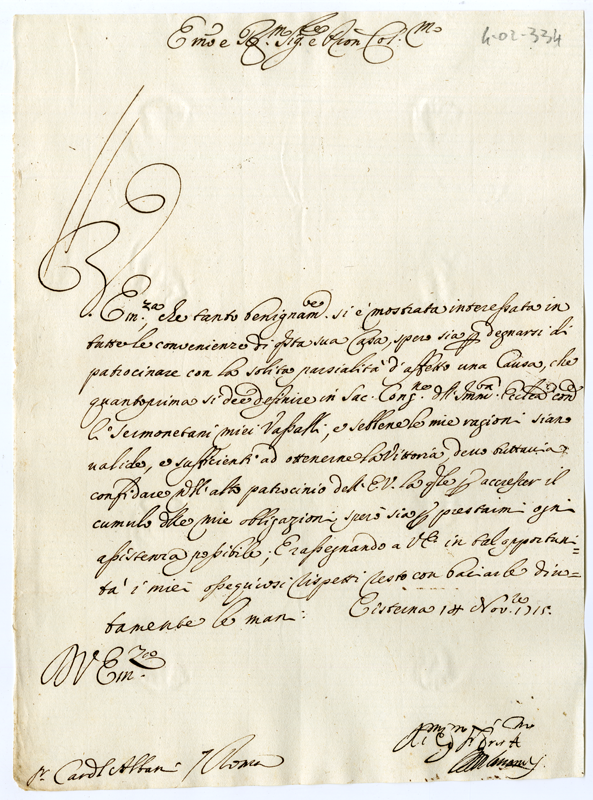 Em.o e R.mo Sig.re e P.ron Col.mo
4-02-334
V. Em.za che tanto benignam.te si è mostrata interessata in
tutte le convenienze di q.sta sua Casa, spero sia p degnarsi di
patrocinare con la solita parsialità d'affetto una Causa, che
quantoprima si deve definire in Sac. Cong.ne dell' Imm.tà Eccl.ca con
li Sermonetani miei Vassalli, e sebbene le mie ragioni siano
valide, e sufficienti ad ottenerne la Vittoria, devo tuttavia
confidare nell' alto patrocinio dell' E.V. la q.le p accrescer il
cumulo delle mie obligazioni sperò sia p prestarmi ogni
assistenza possibile; E rassegnando a V.E. in tal opportuni=
tà i miei ossequiosi rispetti resto con baciarle divo=
tamente le mani. Cisterna 14 Nov.re 1715.
D V Em.za
S.r Card.l Albani / Roma